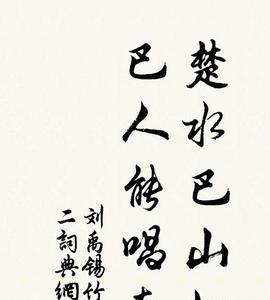 楚水巴山
巴人能唱
刘禹锡竹
二詞典網